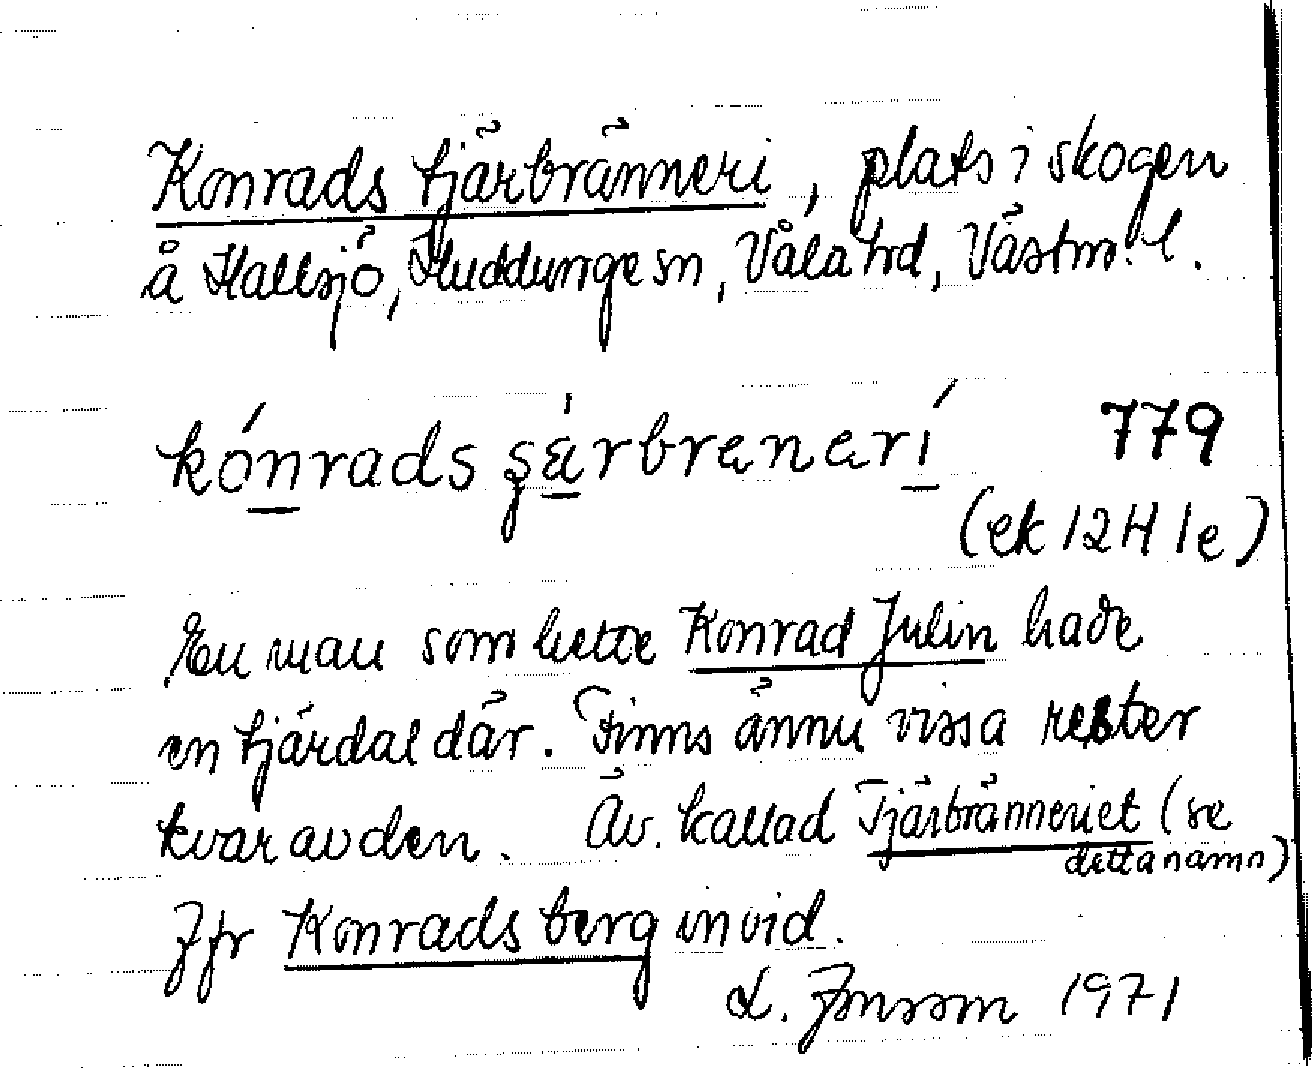 Konrads tjärbränneri, plats i skogen
å Hallsjö, Huddunge sn, Våla hd, Västm. l.
kónrads şä́rbrenerí 779
(ek 12H 1e)
En man som hette Konrad Julin hade
en tjärdal där. Finns ännu vissa rester
kvar av den. Äv. kallad Tjärbränneriet (se
detta namn)
Jfr Konradsberg invid.
L. Jonsson 1971